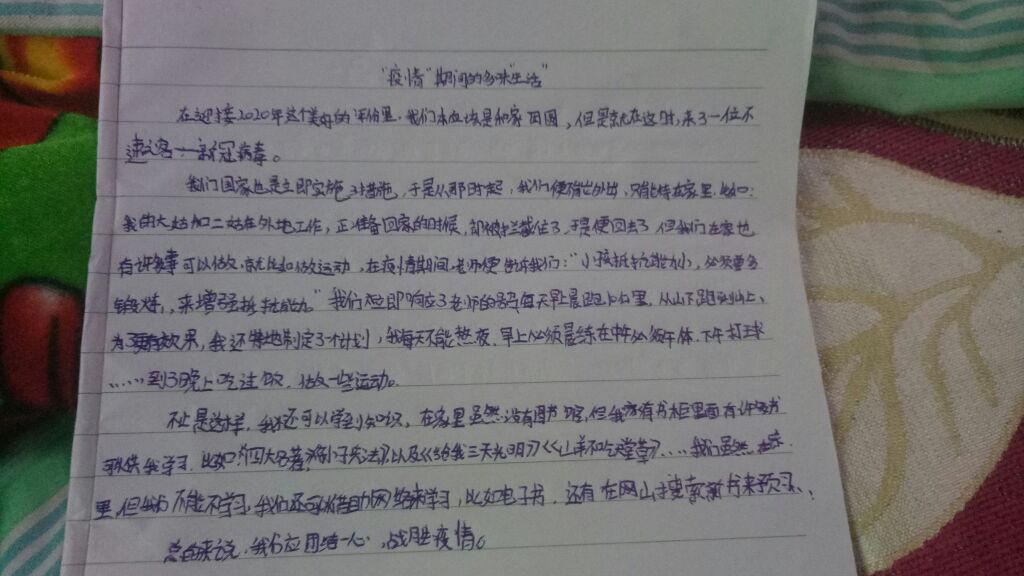 "疫情"期间的多味"生活"
在迎接2020年这个美好的年份里，我们本应该是和家团圆，但是就在这时，来了一位不
速之客——新冠病毒。
我们国家也是立即实施了措施，于是从那时起，我们便不能出外出，只能待在家里，比如：
我的大姑和二姑在外地工作，正准备回家的时候，却被拦截住了，于是便回去了，但我们在家也
有许多事可以做，就比如做运动，在疫情期间，老师便告诉我们："小孩抵抗能力小，必须要多
锻炼，来增强抵抗能力。"我们立即响应了老师的号召每天早晨跑几公里，从山下跑到山上，
为更有效果，我还特地制定了个计划，我每天不能熬夜，早上必须晨练在中午必须午休，下午打球
……到了晚上吃过饭，做一些运动。
不止是这样，我还可以学到知识，在家里虽然没有图书馆，但我家有书柜里面有许多书
可供我学习，比如"四大名著"《孙子兵法》以及《给我三天光明》《山羊不吃天堂草》……我们虽然在家
里，但我们不能不学习，我们还可以借助网络来学习，比如电子书，还有在网上搜索新书来预习，
总的来说，我们应团结一心，战胜疫情。